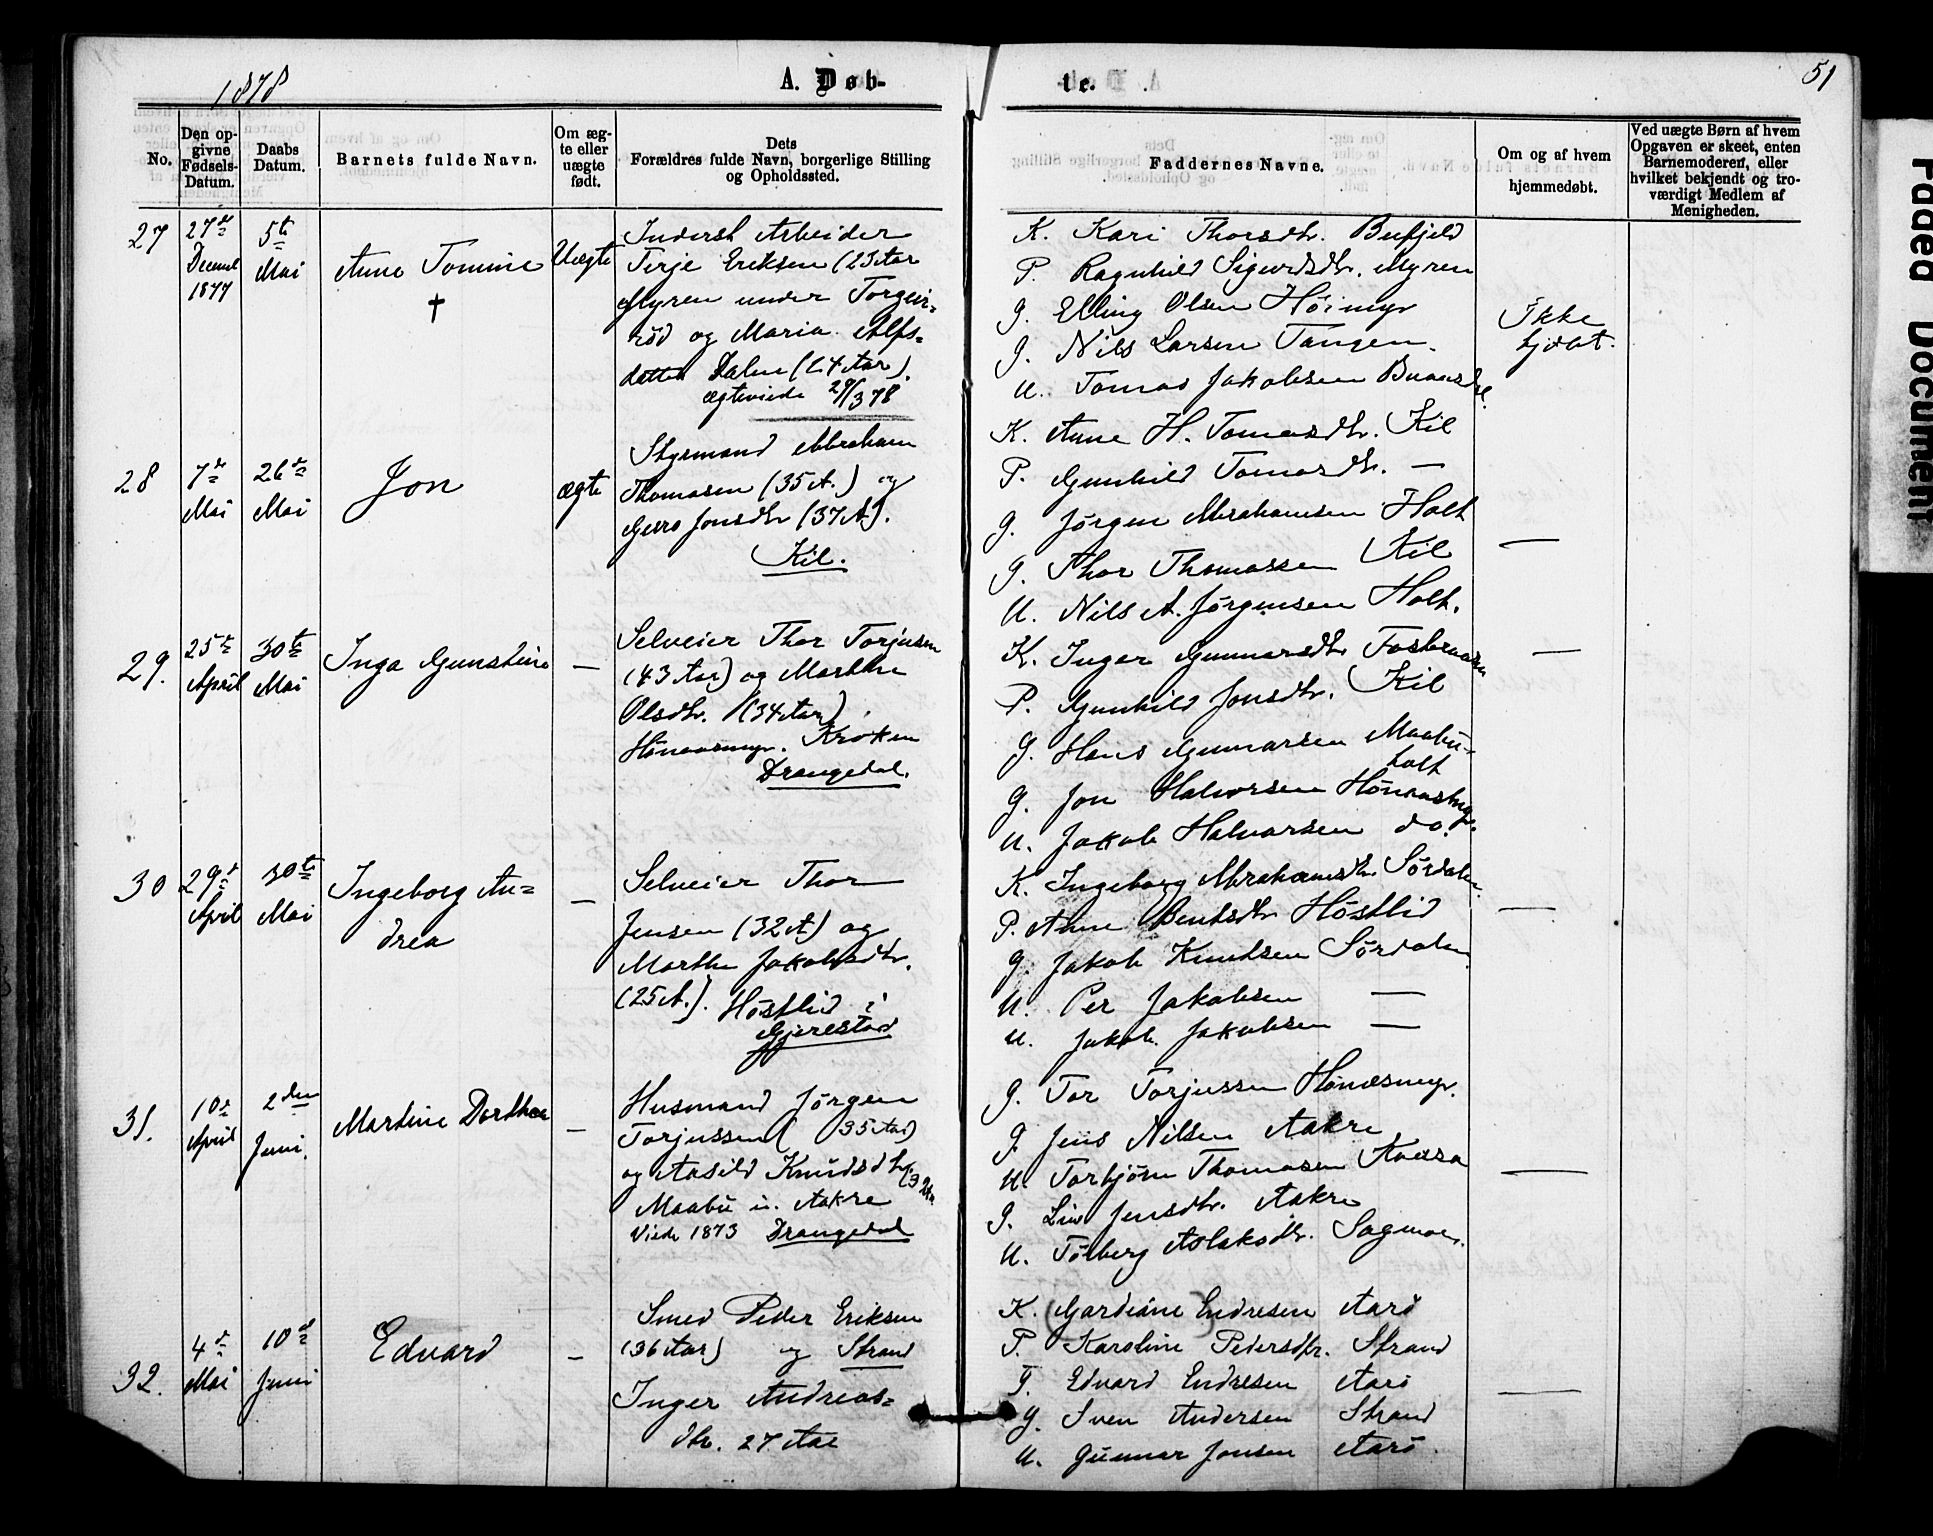 1878
A. Døb-
te.
51
No.
Den op-
givne
Fødsels-
Datum.
Daabs
Datum.
Barnets fulde Navn.
Om æg-
te eller
uægte
født.
Dets
Forældres fulde Navn, borgerlige Stilling
og Opholdssted.
Faddernes Navne.
Om og af hvem
hjemmedøbt.
Ved uægte Børn af hvem
Opgaven er skeet, enten
Barnemoderen, eller
hvilket bekjendt og tro-
værdigt Medlem af
Menigheden.
27
27de
Decemb
1877
5te
Mai
Anne Tomine
†
Uægte
Inderst Arbeider
Terje Eriksen (23 Aar
Myren under Torgeir-
rød og Maria Alfs-
datter Dalen (24 Aar).
ægteviede 29/3 78
K. Kari Thorsdtr. Bufjeld
P. Ragnhild Sigurdsdtr. Myren
G. Elling Olsen Höimyr
G. Nils Larsen Tangen.
U. Tomas Jakobsen
Ikke
hjdbt.
28
7de
Mai
26de
Mai
Jon
ægte
Styrmand Abraham
Thomasen (35 A.) og
Guro Jonsdtr (37 A).
Kil.
K. Anne H. Tomasdtr. Kil
P. Gunhild Tomasdtr. —
G. Jørgen Abrahamsen Holt
G. Thor Thomassen Kil
U. Nils A. Jørgensen Holt.
—
29.
25de
April
30te
Mai
Inga Gunstine
—
Selveier Thor Torjusen
(43 Aar) og Marthe
Olsdtr. (34 Aar)
Hönaasmyr. Kroken
Drangedal.
K. Inger Gunnarsdtr Fosbraaten
P. Gunhild Jonsdtr. Kil
G. Hans Gunnarsen Maabu-
holt
G. Jon Halvorsen Hönaasmyr.
U. Jakob Halvorsen do.
—
30
29de
April
30te
Mai
Ingeborg An-
drea
—
Selveier Thor
Jensen (32 A) og
Marthe Jakobsdtr.
(25 A.). Høstlid i
Gjerestad
K. Ingeborg Abrahamsdtr Sördalen
P. Anne Bentsdtr Høstlid
G. Jakob Knudsen Sördalen
U. Per Jakobsen —
U. Jakob Jakobsen —
—
31.
10de
April
2den
Juni.
Martine Dorthea
—
Husmand Jørgen
Torjussen (35 Aar)
og Aasild Knudsdtr (32 Aar
Maabu u. Aakre
Viede 1873 Drangedal
G. Tor Torjussen Hönaasmyr.
G. Jens Nilsen Aakre
U. Torbjörn Thomasen
G. Liv Jensdtr. Aakre
U. Tolberg Aslaksdtr. Sagmoen.
—
32.
4de
Mai
10de
Juni
Edvard
—
Smed Peder Eriksen
(36 Aar) og Strand
Inger Andreas-
dtr. 27 Aar
K. Gardine Endresen Aarö
P. Karoline Pedersdtr. Strand
G. Edvard Endresen Aarö
G. Sven Andersen Strand
U. Gunnar Jonsen Aarö.
—
Faded Document